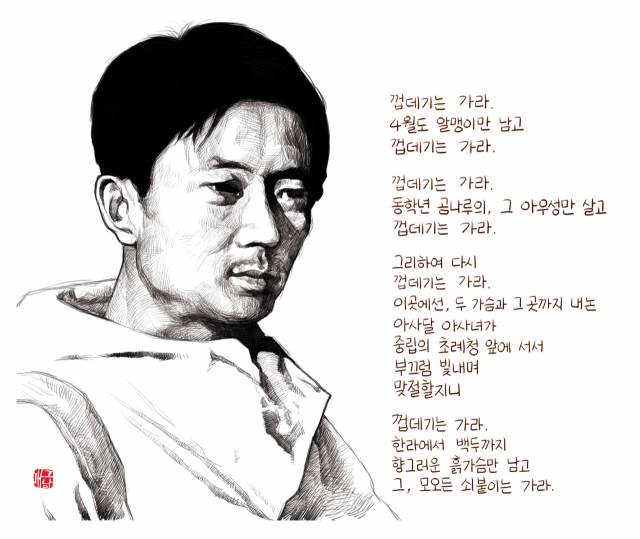 껍데기는 가라.
4월도 알맹이만 남고
껍데기는 가라.
껍데기는 가라.
동학년 곰나루의, 그 아우성만 살고
껍데기는 가라.
그리하여 다시
껍데기는 가라.
이곳에선, 두 가슴과 그곳까지 내논
아사달 아사녀가
중립의 초례청 앞에 서서
부끄럼 빛내며
맞절할지니
껍데기는 가라.
한라에서 백두까지
향그러운 흙가슴만 남고
그, 모오든 쇠붙이는 가라.